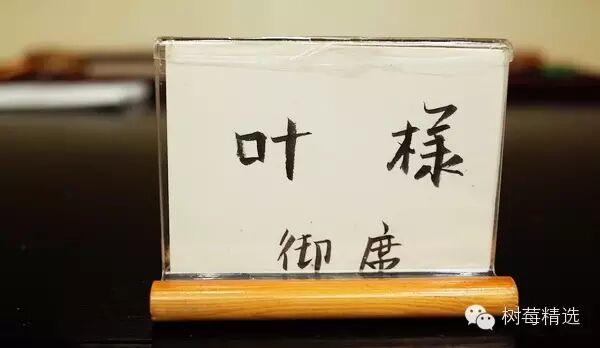 叶 様
御席
树莓精选